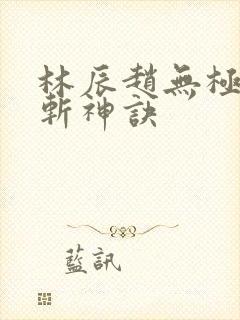 林辰趙無極
斬神訣
藍訊